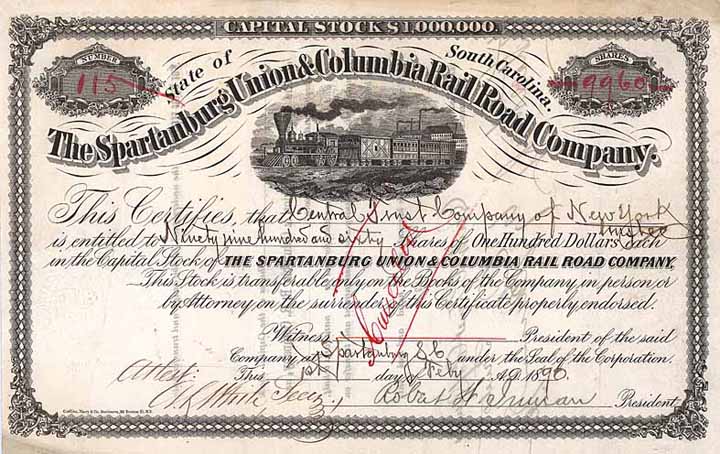 CAPITAL STOCK $1,000,000.
NUMBER
115
SHARES
9960
State of South Carolina.
The Spartanburg Union & Columbia Rail Road Company.
This Certifies, that Central Trust Company of New York
trustee
is entitled to Ninety nine hundred and sixty Shares of One Hundred Dollars Each
in the Capital Stock of THE SPARTANBURG UNION & COLUMBIA RAIL ROAD COMPANY,
This Stock is transferable only on the Books of the Company in person or
by Attorney on the surrender of this Certificate properly endorsed.
Cancelled
Witness President of the said
Company at Spartanburg S.C. under the Seal of the Corporation.
This 1st day of Feby A.D. 1896
Attest:
President.